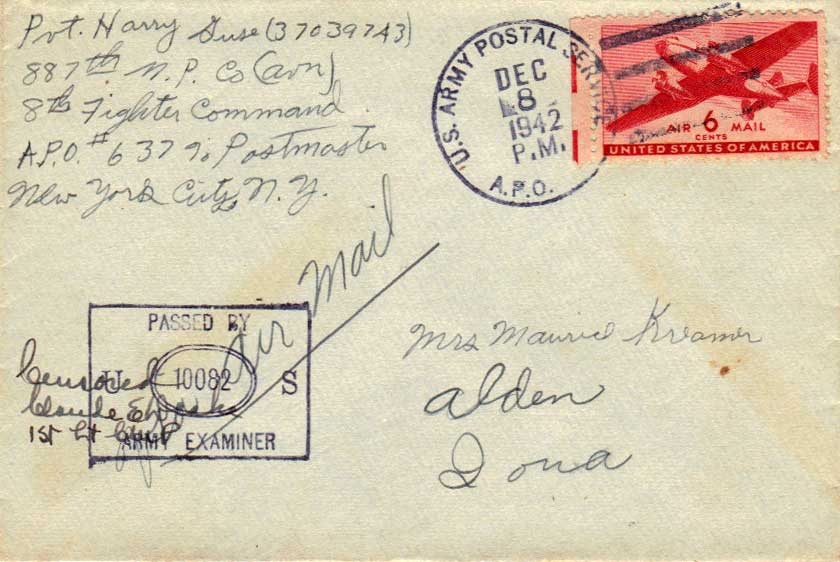 Pvt. Harry Guse (37039743)
887th M.P. Co (avn)
8th Fighter Command
A.P.O. #637 % Postmaster
New York City, N.Y.
U.S. ARMY POSTAL SERVICE
DEC
8
1942
P.M.
A.P.O.
AIR 6 MAIL
CENTS
UNITED STATES OF AMERICA
Air Mail
PASSED BY
U 10082 S
ARMY EXAMINER
Censored
1st Lt
Mrs Maurice Kreamer
Alden
Iowa